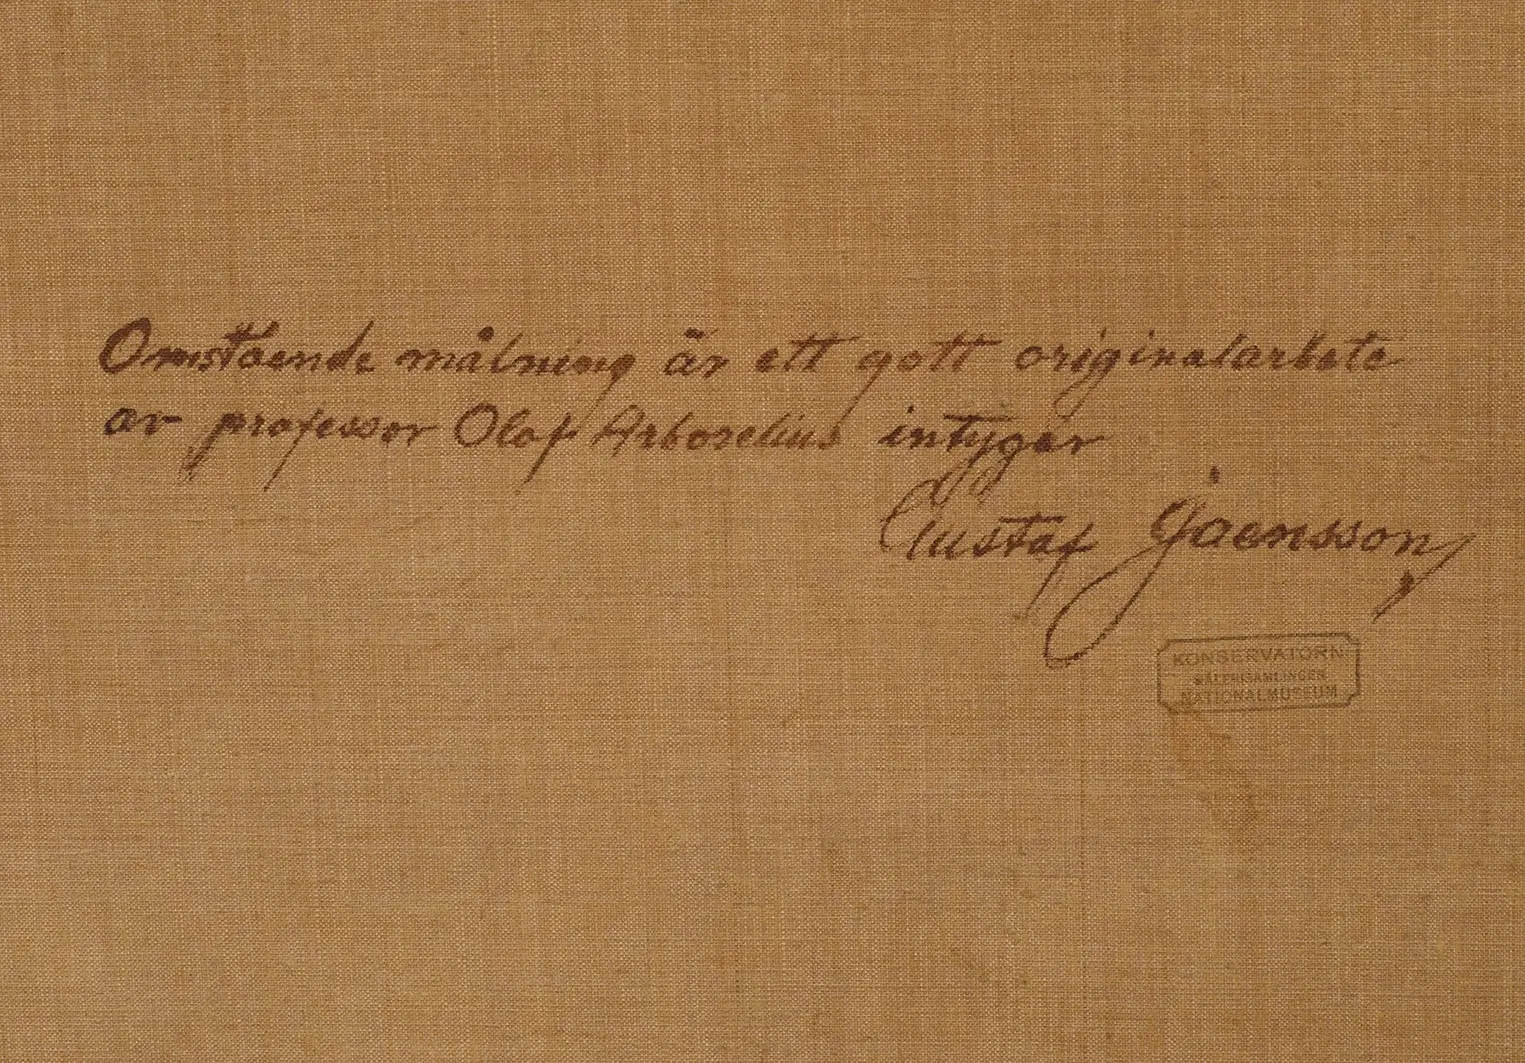 Omstående målning är ett gott originalarbete
av professor Olof Arborelius intygar
Gustaf Jaensson
KONSERVATORN
MÅLERISAMLINGEN
NATIONALMUSEUM